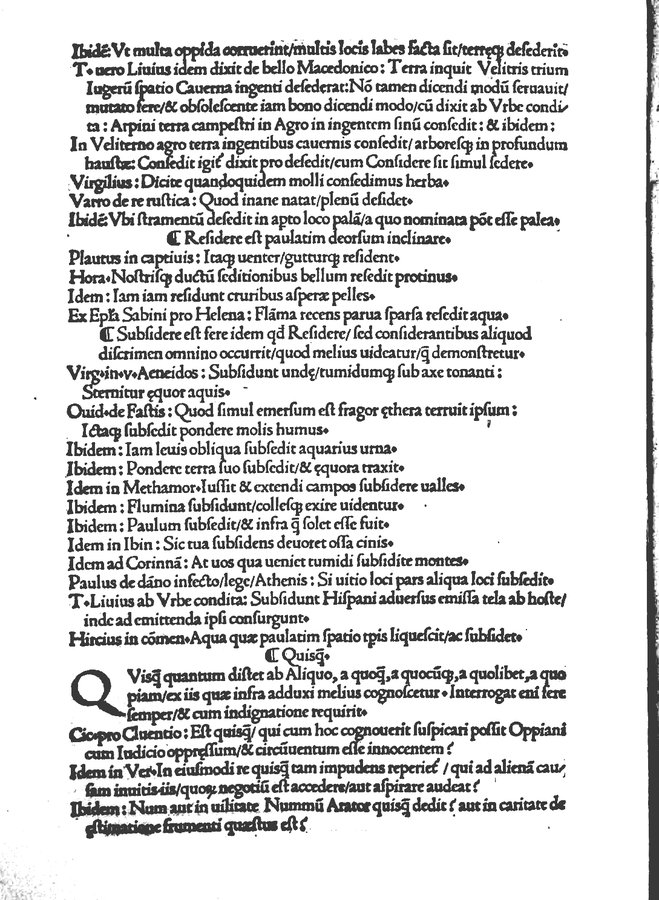 Ibidē: Vt multa oppida corruerint/multis locis labes facta sit/terręq; desederit•
T• uero Liuius idem dixit de bello Macedonico: Terra inquit Velitris trium
Iugerū spatio Cauerna ingenti desederat: Nō tamen dicendi modū seruauit/
mutato fere/& obsolescente iam bono dicendi modo/cū dixit ab Vrbe condi/
ta: Arpini terra campestri in Agro in ingentem sinū consedit: & ibidem:
In Veliterno agro terra ingentibus cauernis consedit/arboresq; in profundum
haustæ: Consedit igit̄ dixit pro desedit/cum Considere sit simul sedere•
Virgilius: Dicite quandoquidem molli consedimus herba•
Varro de re rustica: Quod inane natat/plenū desidet•
Ibidē: Vbi stramentū desedit in apto loco palā/a quo nominata pōt esse palea•
¶ Residere est paulatim deorsum inclinare•
Plautus in captiuis: Itaq; uenter/gutturq; resident•
Hora• Nostrisq; ductū seditionibus bellum resedit protinus•
Idem: Iam iam residunt cruribus asperæ pelles•
Ex Epł̄a Sabini pro Helena: Flāma recens parua sparsa resedit aqua•
¶ Subsidere est fere idem qd̄ Residere/ sed considerantibus aliquod
discrimen omnino occurrit/quod melius uideatur/q̄ demonstretur•
Virg•in•v•Aeneidos: Subsidunt undę/tumidumq; sub axe tonanti:
Sternitur ęquor aquis•
Ouid•de Fastis: Quod simul emersum est fragor ęthera terruit ipsum:
Ictaq; subsedit pondere molis humus•
Ibidem: Iam leuis obliqua subsedit aquarius urna•
Ibidem: Pondere terra suo subsedit/& ęquora traxit•
Idem in Methamor• Iussit & extendi campos subsidere ualles•
Ibidem: Flumina subsidunt/collesq; exire uidentur•
Ibidem: Paulum subsedit/& infra q̄ solet esse fuit•
Idem in Ibin: Sic tua subsidens deuoret ossa cinis•
Idem ad Corinnā: At uos qua ueniet tumidi subsidite montes•
Paulus de dāno infecto/lege/Athenis: Si uitio loci pars aliqua loci subsedit•
T• Liuius ab Vrbe condita: Subsidunt Hispani aduersus emissa tela ab hoste/
inde ad emittenda ipsi consurgunt•
Hircius in cōmen• Aqua quæ paulatim spatio tp̄is liquescit/ac subsidet•
¶ Quisq̄•
QVisq̄ quantum distet ab Aliquo, a quoq̄, a quocūq;, a quolibet, a quo
piam/ex iis quæ infra adduxi melius cognoscetur• Interrogat eni fere
semper/& cum indignatione requirit•
Cic•pro Cluentio: Est quisq̄/ qui cum hoc cognouerit suspicari possit Oppiani
cum Iudicio oppręssum/& circūuentum esse innocentem?
Idem in Ver• In eiusmodi re quisq̄ tam impudens reperiet̄ / qui ad alienā cau/
sam inuitis iis/quoꝝ negotiū est accedere/aut aspirare audeat?
Ibidem: Num aut in uilitate Nummū Arator quisq̄ dedit? aut in caritate de
ęstimatione frumenti quæstus est?